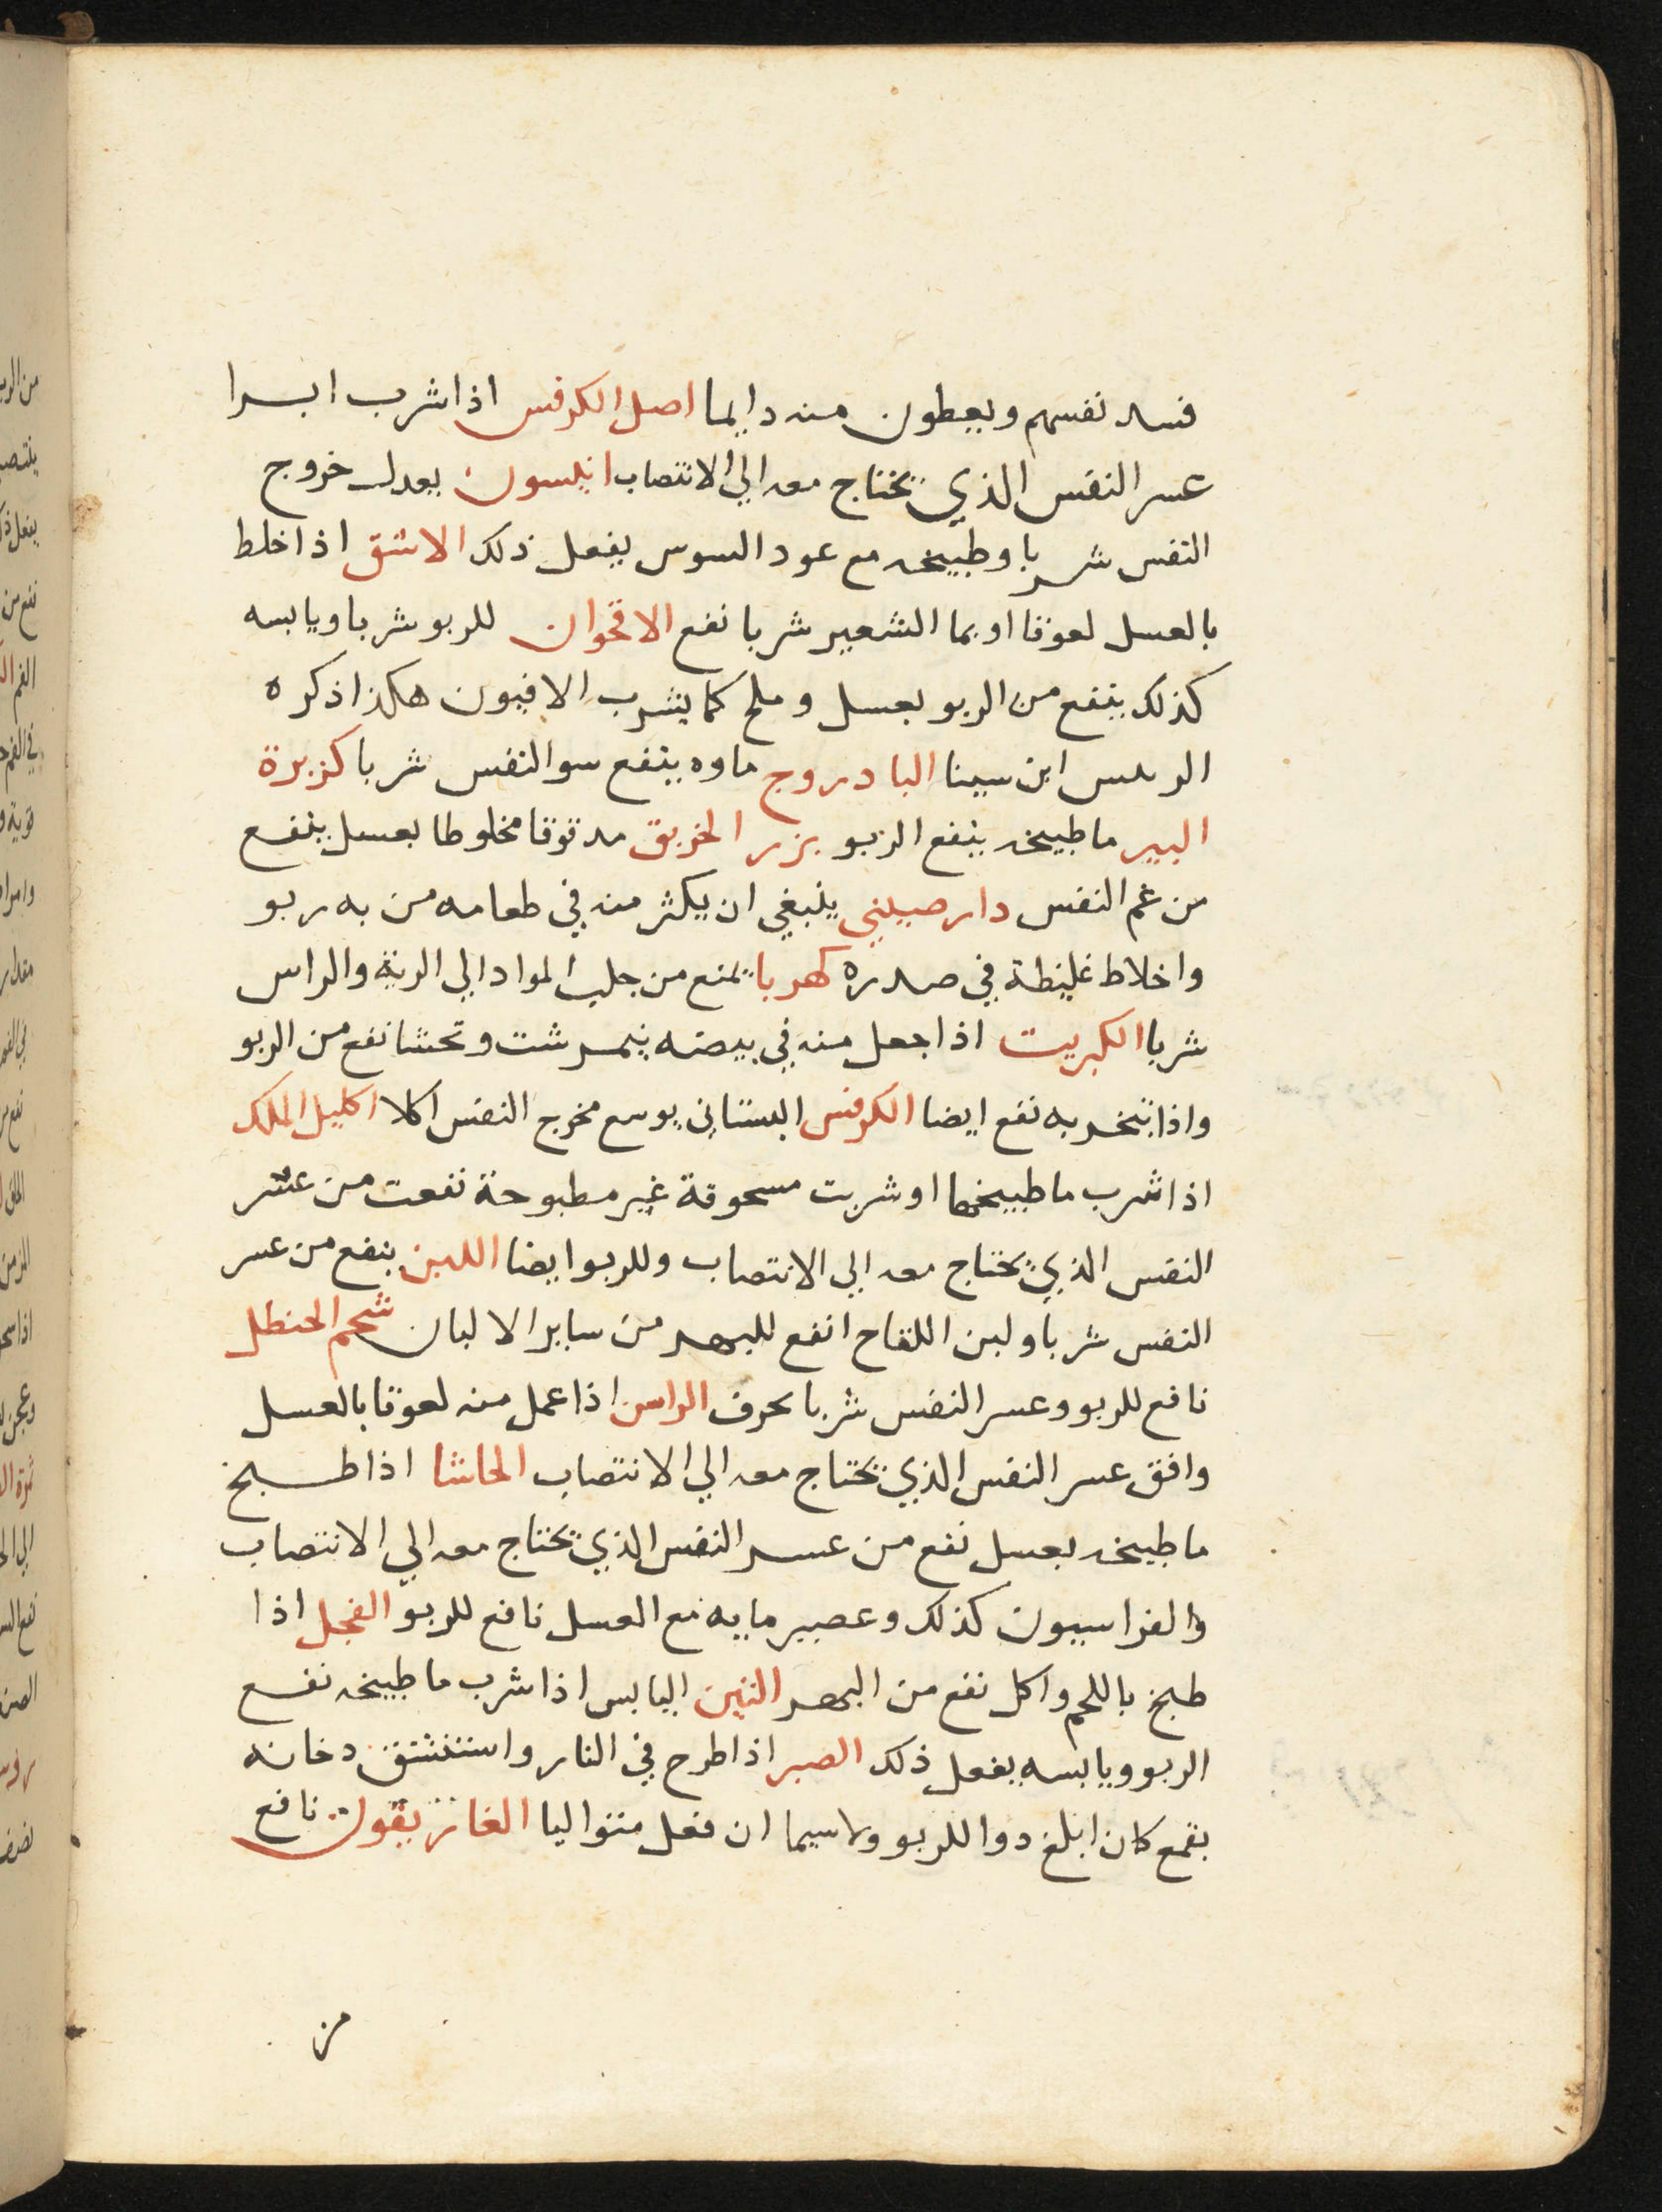 فسد نفسهم ويعطون منه دايما اصل الكرفس اذا شرب ابرا
عسر النفس الذي يحتاج معه الي الانتصاب انيسون يعدل خروج
النفس شربا وطبيخه مع عود السوس يفعل ذلك الاشق اذا خلط
بالعسل لعوقا او بما الشعير شربا نفع الاقحوان للربو شربا ويابسه
كذلك ينفع من الربو بعسل وملح كما يشرب الافيون هكذا ذكره
الريس ابن سينا البادروج ماوه ينفع سو النفس شربا كزبرة
البير ما طبيخه ينفع الربو بزر الخربق مدقوقا مخلوطا بعسل ينفع
من غم النفس دارصيني ينبغي ان يكثر منه في طعامه من به ربو
واخلاط غليظة في صدره كهربا يمنع من جلب المواد الي الرية والراس
شربا الكبريت اذا جعل منه في بيضه نيمرشت وتحشا نفع من الربو
واذا تبخر به نفع ايضا الكرفس البستاني يوسع مخرج النفس اكلا اكليل الملك
اذا شرب ما طبيخها او شربت مسحوقة غير مطبوخة نفعت من عسر
النفس الذي يحتاج معه الي الانتصاب وللربو ايضا اللبن ينفع من عسر
النفس شربا ولبن اللقاح انفع للبهر من ساير الالبان شحم الحنطل
نافع للربو وعسر النفس شربا بحرف الراسن اذا عمل منه لعوقا بالعسل
وافق عسر النفس الذي يحتاج معه الي الانتصاب الحاشا اذا طبخ
ما طبيخه بعسل نفع من عسر النفس الذي يحتاج معه الي الانتصاب
والفراسيون كذلك وعصير مايه مع العسل نافع للربو الفجل اذا
طبخ باللحم واكل نفع من البهر التين اليابس اذا شرب ما طبيخه نفع
الربو ويابسه يفعل ذلك الصبر اذا طرح في النار واستنشق دخانه
بقمع كان ابلغ دوا للربو ولاسيما ان فعل متواليا الغاريقون نافع
من